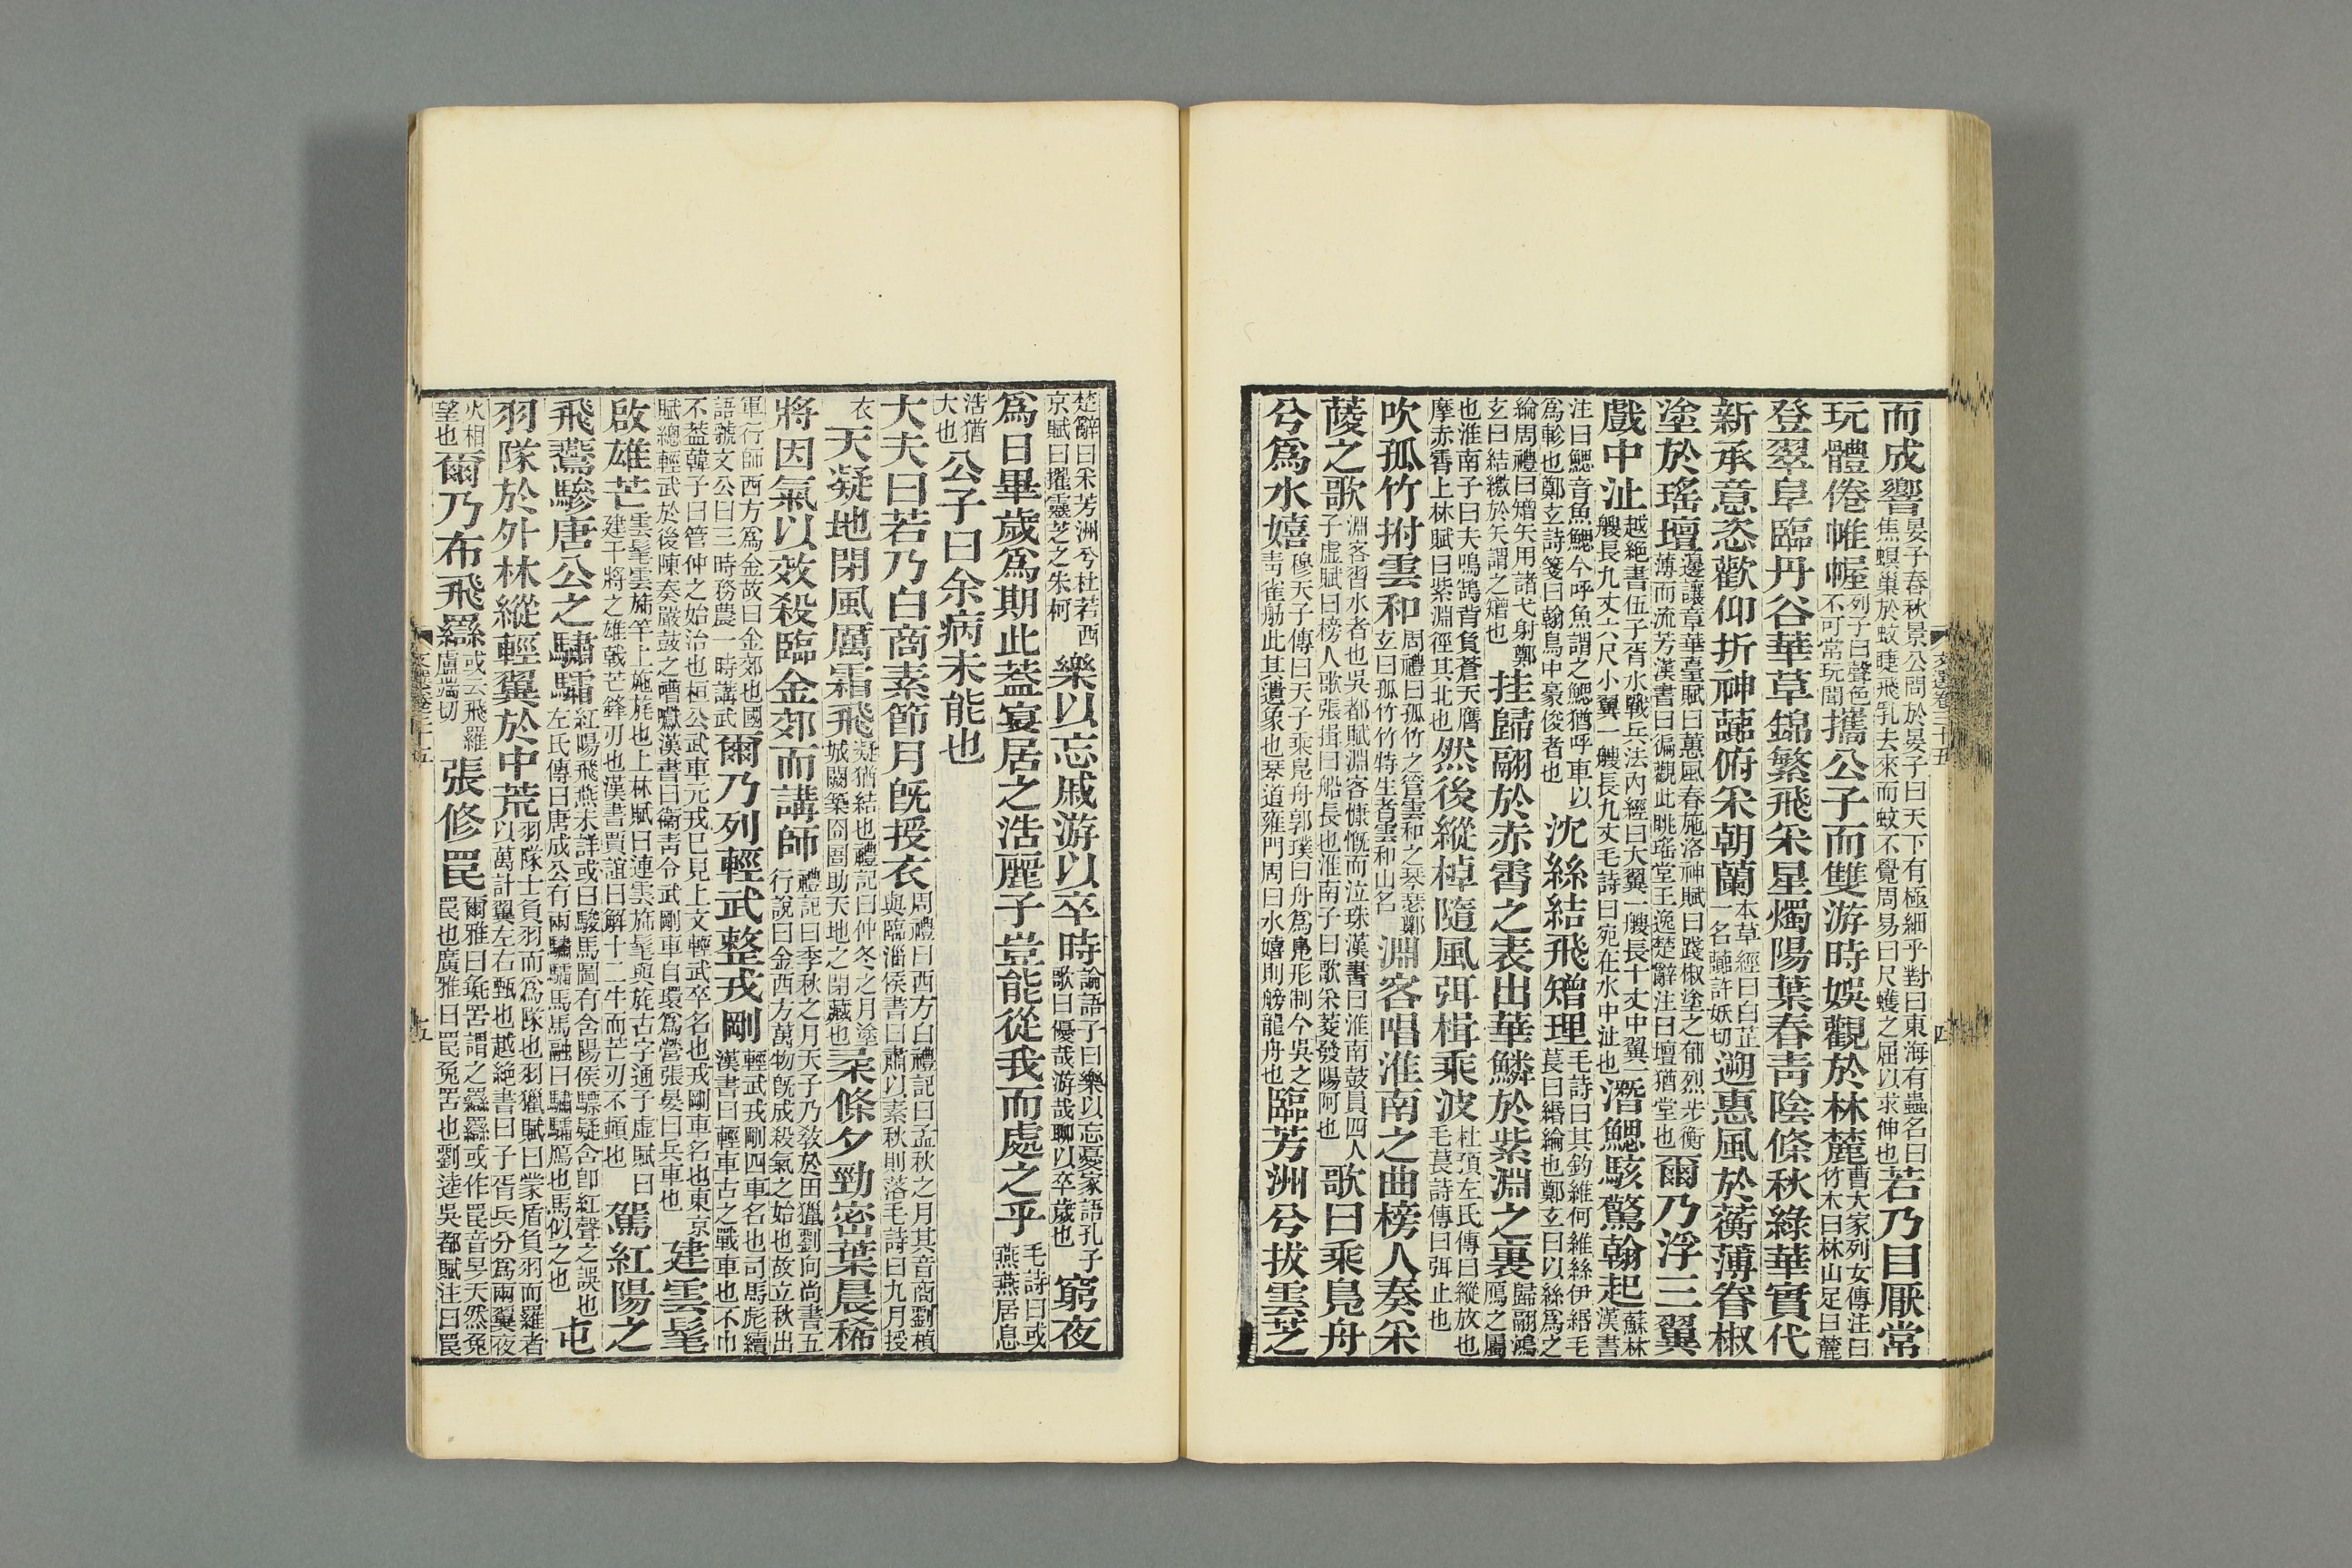 而成響晏子春秋景公問於晏子曰天下有極細乎對曰東海有蟲名曰焦螟巢於蚊睫飛乳去來而蚊不覺周易曰尺蠖之屈以求伸也若乃目厭常
玩體倦帷幄列子曰聲色不可常玩聞攜公子而雙游時娛觀於林麓曹大家列女傳注曰竹木曰林山足曰麓
登翠阜臨丹谷華草錦繁飛采星燭陽葉春青陰條秋綠華實代
新承意恣歡仰折神蘤俯采朝蘭本草經曰白芷一名蘤許妖切遡惠風於蘅薄眷椒
塗於瑤壇邊讓章華臺賦曰蕙風春施洛神賦曰踐椒塗之郁烈步衡薄而流芳漢書曰徧觀此眺瑤堂王逸楚辭注曰壇猶堂也爾乃浮三翼
戲中沚越絶書伍子胥水戰兵法內經曰大翼一艘長十丈中翼一艘長九丈六尺小翼一艘長九丈毛詩曰宛在水中沚也潛鰓駭驚翰起蘇林漢書
注曰鰓音魚鰓今呼魚謂之鰓猶呼車以爲軫也鄭玄詩箋曰翰鳥中豪俊者也沈絲結飛矰理毛詩曰其釣維何維絲伊緡毛萇曰緡綸也鄭玄曰以絲爲之
綸周禮曰矰矢用諸弋射鄭玄曰結繳於矢謂之矰也挂歸翮於赤霄之表出華鱗於紫淵之裏歸翮鴻鴈之屬
也淮南子曰夫鳴鵠背負蒼天膺摩赤霄上林賦曰紫淵徑其北也然後縱棹隨風弭楫乘波杜預左氏傳曰縱放也毛萇詩傳曰弭止也
吹孤竹拊雲和周禮曰孤竹之管雲和之琴瑟鄭玄曰孤竹竹特生者雲和山名淵客唱淮南之曲榜人奏采
蔆之歌淵客習水者也吳都賦淵客慷慨而泣珠漢書曰淮南鼓員四人子虛賦曰榜人歌張揖曰船長也淮南子曰歌采菱發陽阿也歌曰乘鳧舟
兮爲水嬉穆天子傳曰天子乘鳧舟郭璞曰舟爲鳧形制今吳之青雀舫此其遺象也琴道雍門周曰水嬉則舫龍舟也臨芳洲兮拔雲芝
文選卷三十五
四
楚辭曰采芳洲兮杜若西京賦曰擢靈芝之朱柯樂以忘戚游以卒時論語子曰樂以忘憂家語孔子歌曰優哉游哉聊以卒歲也窮夜
爲日畢歲爲期此蓋宴居之浩麗子豈能從我而處之乎毛詩曰或燕燕居息
浩猶大也公子曰余病未能也
大夫曰若乃白商素節月旣授衣周禮曰西方白禮記曰孟秋之月其音商劉楨與臨淄侯書曰肅以素秋則落毛詩曰九月授
衣天凝地閉風厲霜飛凝猶結也禮記曰仲冬之月塗城闕築囹圄助天地之閉藏也柔條夕勁密葉晨稀
將因氣以效殺臨金郊而講師禮記曰季秋之月天子乃敎於田獵劉向尚書五行說曰金西方萬物旣成殺氣之始也故立秋出
軍行師西方爲金故曰金郊也國語虢文公曰三時務農一時講武爾乃列輕武整戎剛輕武戎剛四車名也司馬彪續漢書曰輕車古之戰車也不巾
不蓋韓子曰管仲之始治也桓公武車元戎已見上文輕武卒名也戎剛車名也東京賦總輕武於後陳奏嚴鼓之嘈囐漢書曰衛青令武剛車自環爲營張晏曰兵車也建雲髦
啟雄芒雲髦雲旓竿上施旄也上林賦曰連雲旓髦與旄古字通子虛賦曰建干將之雄戟芒鋒刃也漢書賈誼曰解十二牛而芒刃不頓也駕紅陽之
飛鷰驂唐公之驌驦紅陽飛燕未詳或曰駿馬圖有含陽侯驃疑含卽紅聲之誤也左氏傳曰唐成公有兩驌驦馬馬融曰驌驦鴈也馬似之也屯
羽隊於外林縱輕翼於中荒羽隊士負羽而爲隊也羽獵賦曰蒙盾負羽而羅者以萬計翼左右甄也越絶書曰子胥兵分爲兩翼夜
火相望也爾乃布飛羉或云飛羅盧端切張修罠爾雅曰彘罟謂之羉羉或作罠音旻天然兔罠也廣雅曰罠兔罟也劉逵吳都賦注曰罠
文選卷三十五
五